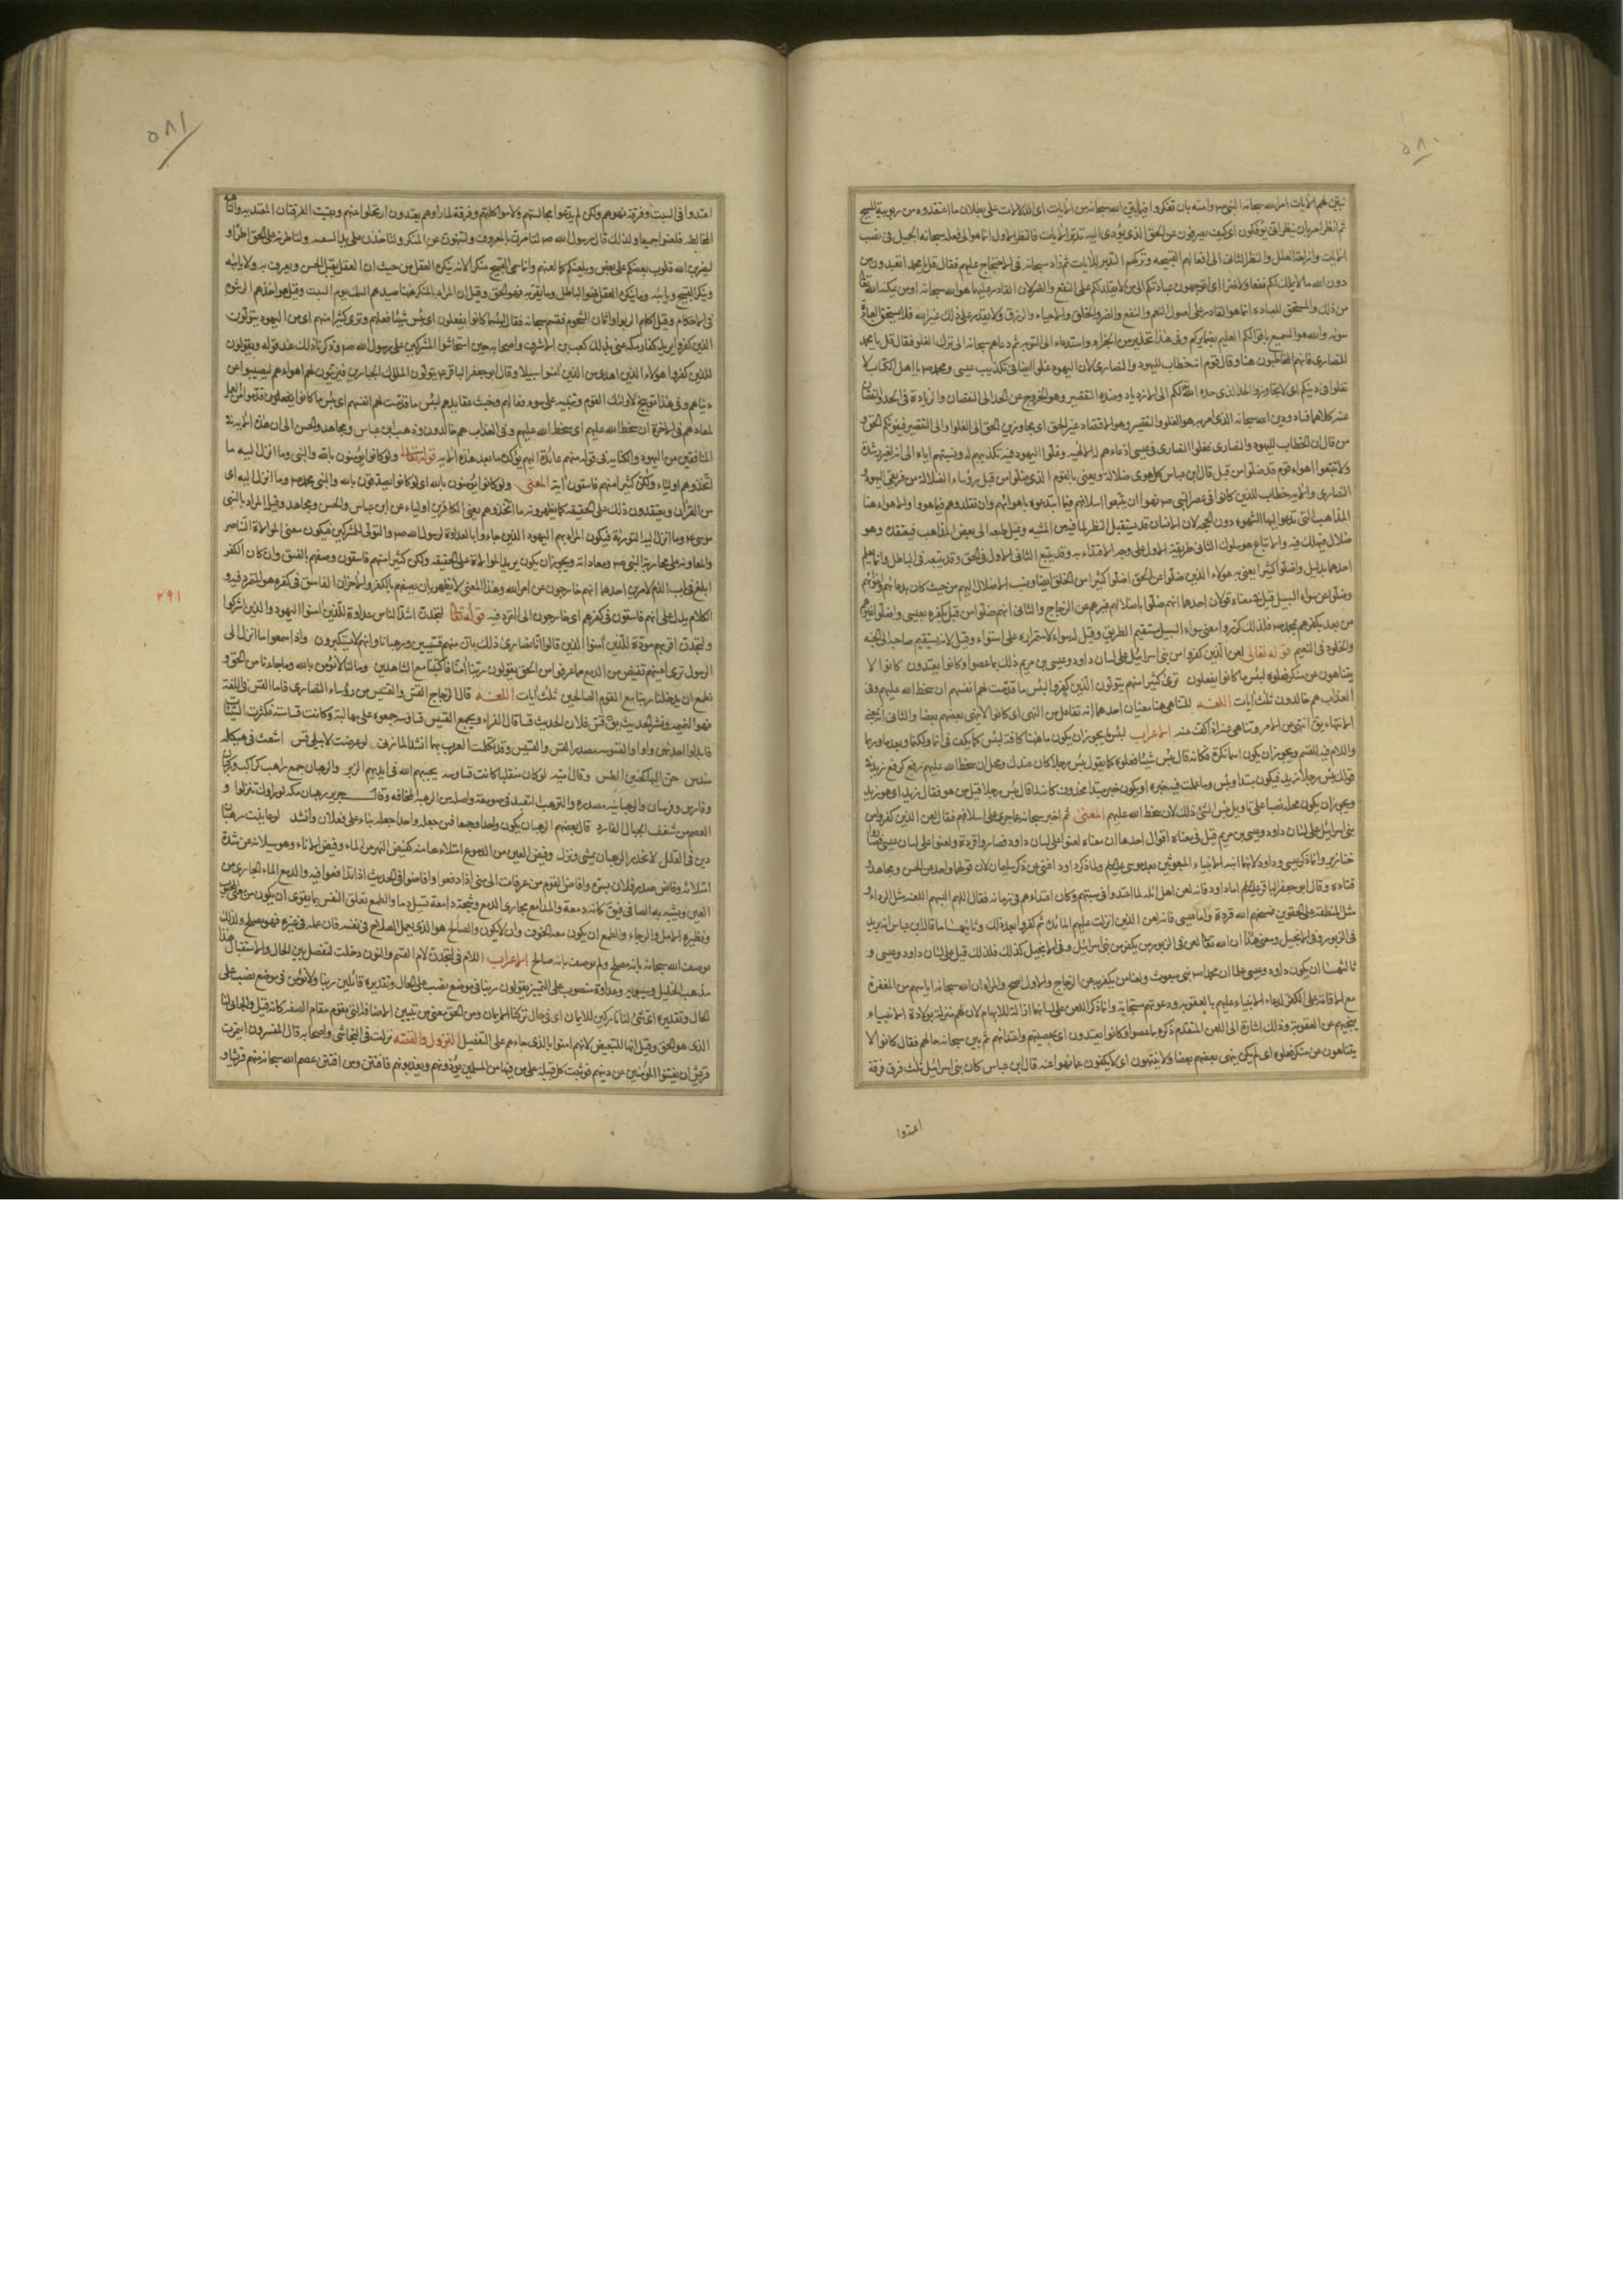 ٥٨٠
نبين لهم الآيات امر الله سبحانه النبي ص وامته بان تفكروا فيما بين الله سبحانه من الآيات اى الدلالات على بطلان ما اعتقدوه من ربوبية المسيح
ثم انظر امر بان ينظر انى يؤفكون اى كيف يصرفون عن الحق الذى يؤدى اليه تدبر الآيات فالنظر الاول انما هو الى فعله سبحانه الجميل فى نصب
الايات وازاحة العلل والنظر الثانى الى افعالهم القبيحه وتركهم التدبر للآيات ثم زاد سبحانه فى الاحتجاج عليهم فقال قل يا محمد اتعبدون من
دون الله ما لا يملك لكم نفعا ولا ضرا اى اتوجهون عبادتكم الى من لا يقدر لكم على النفع والضر لان القادر عليهما هو الله سبحانه او من يمكنه الله تعا
من ذلك والمستحق للعباده انما هو القادر على اصول النعم والنفع والضر والخلق والاحياء والرزق ولا يقدر على ذلك غير الله فلا يستحق العبادة
سوىه والله هو السميع باقوالكم العليم بضمايركم وفى هذا تحذير من الجزاء واستدعاء الى التوبه ثم دعاهم سبحانه الى ترك الغلو فقال قل يا محمد
للنصارى فانهم المخاطبون هنا وقال قوم انه خطاب لليهود والنصارى لان اليهود غلوا ايضا فى تكذيب عيسى ومحمد ص يا اهل الكتاب لا
تغلوا فى دينكم اى لا تتجاوزوا الحد الذى حده الله لكم الى الازدياد وضده التقصير وهو الخروج عن الحد الى النقصان والزيادة فى الحد والنقصان
عنه كلاهما فساد ودين الله سبحانه الذى امر به هو بين الغلو والتقصير وهو الاقتصاد غير الحق اى مجاوزين الحق الى الغلو والى التقصير فيفوتكم الحق و
من قال ان الخطاب لليهود والنصارى فغلو النصارى فى عيسى ادعاءهم له الالهيه وغلو اليهود فيه تكذيبهم له ونسبتهم اياه الى انه لغير رشدة
ولا تتبعوا اهواء قوم قد ضلوا من قبل قال ابن عباس كل هوى ضلالة ويعنى بالقوم الذى ضلوا من قبل رؤساء الضلالة من فريقى اليهود
النصارى والايه خطاب للذين كانوا فى عصر النبى ص نهوا ان يتبعوا اسلافهم فيما ابتدعوه باهوائهم وان يقلدوهم فيما هووا والاهواء هنا
المذاهب التى تدعو اليها الشهوه دون الحجه لان الانسان قد يستثقل النظر لما فيه من المشقه ويميل طبعه الى بعض المذاهب فيعتقده وهو
ضلال فيهلك فيه والاتباع هو سلوك الثانى طريقة الاول على وجه الاقتداء به وقد يتبع الثانى الاول فى الحق وقد يتبعه فى الباطل وانما يعلم
احدهما بدليل واضلوا كثيرا يعنى به هولاء الذين ضلوا عن الحق اضلوا كثيرا من الخلق ايضا ونسب الاضلال اليهم من حيث كان بدعائهم واغوائهم
وضلوا عن سواء السبيل قيل فى معناه قولان احدهما انهم ضلوا باضلالهم غيرهم عن الزجاج والثانى انهم ضلوا من قبل بكفرهم بعيسى واضلوا غيرهم
من بعد بكفرهم بمحمد ص فلذلك كرر ومعنى سواء السبيل مستقيم الطريق وقيل له سواء لاستمراره على استواء وقيل لانه يستقيم بصاحبه الى الجنه
والخلود فى النعيم قوله تعالى لعن الذين كفروا من بنى اسرائيل على لسان داود وعيسى بن مريم ذلك بما عصوا وكانوا يعتدون كانوا لا
يتناهون عن منكر فعلوه لبئس ما كانوا يفعلون ترى كثيرا منهم يتولون الذين كفروا لبئس ما قدمت لهم انفسهم ان سخط الله عليهم وفى
العذاب هم خالدون ثلث آيات اللغـه للتناهى هنا معنيان احدهما انه تفاعل من النهى اى كانوا لا ينهى بعضهم بعضا والثانى انه بمعنى
الانتهاء يق انتهى عن الامر وتناهى عنه اذا كف عنه الاعراب لبئس ما يجوز ان يكون ما ههنا كافة لبئس كما يكف فى انما ولكنما وبعد ما وربما
واللام فيه للقسم ويجوز ان يكون اسما نكرة فكانه قال بئس شيئا فعلوه كما يقول بئس رجلا كان عندك ومحل ان سخط الله عليهم رفع كرفع زيد فى
قولك بئس رجلا زيد فيكون مبتدا وبئس وما عملت فيه خبره او يكون خبر مبتدا محذوف كانه لما قال بئس رجلا قيل من هو فقال زيد اى هو زيد
ويجوز ان يكون محله نصبا على تاويل بئس الشئ ذلك لان سخط الله عليهم المعنى ثم اخبر سبحانه عما جرى على اسلافهم فقال لعن الذين كفروا من
بنى اسرائيل على لسان داود وعيسى بن مريم قيل فى معناه اقوال احدها ان معناه لعنوا على لسان داود فصاروا قردة ولعنوا على لسان عيسى فصاروا
خنازير وانما ذكر عيسى وداود لانهما انبه الانبياء المبعوثين بعد موسى عليهم ولما ذكر داود اغنى عن ذكر سليمان لان قولهما واحد عن الحسن ومجاهد و
قتاده وقال ابو جعفر الباقر عليهم اما داود فانه لعن اهل ايله لما اعتدوا فى سبتهم وكان اعتداءهم فى زمانه فقال اللهم البسهم اللعنه مثل الرداء و
مثل المنطقة على الحقوين فمسخهم الله قردة واما عيسى فانه لعن الذين انزلت عليهم المائدة ثم كفروا بعد ذلك وثانيهـا ما قاله ابن عباس انه يريد
فى الزبور وفى الانجيل ومعنى هذا ان الله تعا لعن فى الزبور من يكفر من بنى اسرائيل وفى الانجيل كذلك فلذلك قيل على لسان داود وعيسى و
ثالثهـا ان يكون داود وعيسى علما ان محمدا ص نبى مبعوث ولعنا من يكفر به عن الزجاج والاول اصح والمراد ان الله سبحانه ايأسهم من المغفرة
مع الاقامة على الكفر لدعاء الانبياء عليهم بالعقوبه ودعوتهم مستجابة وانما ذكر اللعن على لسانهما ازالة للايهام لان لهم منزلة بولادة الانبياء
ينجيهم من العقوبة وذلك اشارة الى اللعن المتقدم ذكره بما عصوا وكانوا يعتدون اى بمعصيتهم واعتدائهم ثم بين سبحانه حالهم فقال كانوا لا
يتناهون عن منكر فعلوه اى لم يكن ينهى بعضهم بعضا ولا ينتهون اى لا يكفون عما نهوا عنه قال ابن عباس كان بنى اسرائيل ثلث فرق فرقة
اعتدوا
٥٨١
اعتدوا فى السبت وفرقة نهوهم ولكن لم يدعوا مجالستهم ولا مواكلتهم وفرقة لما راوهم يعتدون ارتحلوا عنهم وبقيت الفرقتان المعتديه والناهية
المخالطه فلعنوا جميعا ولذلك قال رسول الله ص لتامرن بالمعروف ولتنهون عن المنكر ولتاخذن على يد السفيه ولتاطرنه على الحق اطرا او
ليضربن الله قلوب بعضكم على بعض ويلعنكم كما لعنهم وانما سمى القبيح منكرا لانه ينكره العقل من حيث ان العقل يقبل الحسن ويعرف به ولا ياباه
وينكر القبيح وياباه وما ينكره العقل فهو الباطل وما يقر به فهو الحق وقيل ان المراد بالمنكر هنا صيدهم السمك يوم السبت وقيل هو اخذهم الرشوة
فى الاحكام وقيل اكلهم الربوا واثمان الشحوم فقسم سبحانه فقال لبئسما كانوا يفعلون اى بئس شيئا فعلهم وترى كثيرا منهم اى من اليهود يتولون
الذين كفروا يريد كفار مكه عنى بذلك كعب بن الاشرف واصحابه حين استجاشوا المشركين على رسول الله ص وذكرنا ذلك عند قوله ويقولون
للذين كفروا هولاء اهدى من الذين امنوا سبيلا وقال ابو جعفر الباقر ع يتولون الملوك الجبارين فيزينون لهم اهواءهم ليصيبوا من
دنياهم وفى هذا توبيخ لاولئك القوم وتنبيه على سوء فعالهم وخبث عقايدهم لبئس ما قدمت لهم انفسهم اى بئس ما كانوا يفعلون قدموا من العمل
لمعادهم فى الاخرة ان سخط الله عليهم اى سخط الله عليهم وفى العذاب هم خالدون وذهب ابن عباس ومجاهد والحسن الى ان هذه الآية فى
المنافقين من اليهود والكناية فى قوله منهم عائدة اليهم يؤكده ما بعد هذه الايه قوله تعالى ولو كانوا يؤمنون بالله والنبى وما انزل اليه ما
اتخذوهم اولياء ولكن كثيرا منهم فاسقون آية المعنى ولو كانوا يؤمنون بالله اى لو كانوا يصدقون بالله والنبى محمد ص وما انزل اليه اى
من القرآن ويعتقدون ذلك على الحقيقه كما يظهرونه ما اتخذوهم يعنى الكافرين اولياء عن ابن عباس والحسن ومجاهد وقيل المراد بالنبى
موسى ع وما انزل اليه التورية فيكون المراد بهم اليهود الذين جاءوا بالعداوة لرسول الله ص والتولى للمشركين فيكون معنى الموالاة التناصر
والمعاونة على محاربة النبى ص ومعاداته ويجوز ان يكون يريد الموالاة على الحقيقة ولكن كثيرا منهم فاسقون وصفهم بالفسق وان كان الكفر
ابلغ فى باب الذم لامرين احدهما انهم خارجون عن امر الله وهذا المعنى لا يظهر بان يصفهم بالكفر والاخر ان الفاسق فى كفره هو المتمرد فيه و
٢٩١
الكلام يدل على انهم فاسقون فى كفرهم اى خارجون الى التمرد فيه قوله تعا لتجدن اشد الناس عداوة للذين امنوا اليهود والذين اشركوا
ولتجدن اقربهم مودة للذين امنوا الذين قالوا انا نصارى ذلك بان منهم قسيسين ورهبانا وانهم لا يستكبرون واذا سمعوا ما انزل الى
الرسول ترى اعينهم تفيض من الدمع مما عرفوا من الحق يقولون ربنا امنا فاكتبنا مع الشاهدين وما لنا لا نؤمن بالله وما جاءنا من الحق و
نطمع ان يدخلنا ربنا مع القوم الصالحين ثلث آيات اللغـه قال الزجاج القس والقسيس من رؤساء النصارى فاما القس فى اللغة
فهو النميمه ونشر الحديث يق قس فلان الحديث قسا قال الفراء ويجمع القسيس قساقسه جمعوه على مهالبة وكانت قساسة فكثرت السينات
فابدلوا احداهن واوا والقسوسه مصدر القس والقسيس وقد تكلمت العرب بهما انشد المازنى لو عرضت لايبلى قس اشعث فى هيكله
مندس حن اليها كحنين الطس وقال اميه لو كان منفلت كانت قساوسه يحييهم الله فى ايديهم الزبر والرهبان جمع راهب كراكب وركبان
وفارس وفرسان والرهبانيه مصدره والترهب التعبد فى صومعة واصله من الرهبة المخافه وقال جرير رهبان مكه لو راوك تنزلوا و
العصم من شغف الجبال الفادر قال بعضهم الرهبان يكون واحدا وجمعا فمن جعله واحدا جعله بناء على فعلان وانشد لو عاينت رهبان
دير فى القلل لانحدر الرهبان يمشى ونزل وفيض العين من الدموع امتلاءها منه كفيض النهر من الماء وفيض الاناء وهو سيلانه من شدة
امتلائه وفاض صدر فلان بسره وافاض القوم من عرفات الى منى اذا دفعوا وافاضوا فى الحديث اذا تدافعوا فيه والدمع الماء الجارى من
العين ويشبه به الصافى فيق كانه دمعة والمدامع مجارى الدمع وشجة دامعة تسيل دما والطمع تعلق النفس بما يقوى ان يكون من معنى المحبوب
ونظيره الامل والرجاء والطمع ان يكون معه الخوف وان لا يكون والصالح هو الذى يعمل الصلاح فى نفسه فان عمله فى غيره فهو مصلح ولذلك
يوصف الله سبحانه بانه مصلح ولم يوصف بانه صالح الاعراب اللام فى لتجدن لام القسم والنون دخلت لتفصل بين الحال والاستقبال هذا
مذهب الخليل وسيبويه وعداوة منصوب على التمييز يقولون ربنا فى موضع نصب على الحال وتقديره قائلين ربنا ولا نؤمن فى موضع نصب على
الحال وتقديره اى شئ لنا تاركين للايمان اى فى حال تركنا الايمان ومن الحق معنى من تبيين الاضافة التى يقوم مقام الصفه كانه قيل والجائى لنا
الذى هو الحق وقيل انها للتبعيض لانهم امنوا بالذى جاءهم على التفصيل النزول والقصه نزلت فى النجاشى واصحابه قال المفسرون ايتمرت
قريش ان يفتنوا المؤمنين عن دينهم فوثبت كل قبيلة على من فيها من المسلمين يؤذونهم ويعذبونهم فافتتن من افتتن وعصم الله سبحانه منهم من شاء و